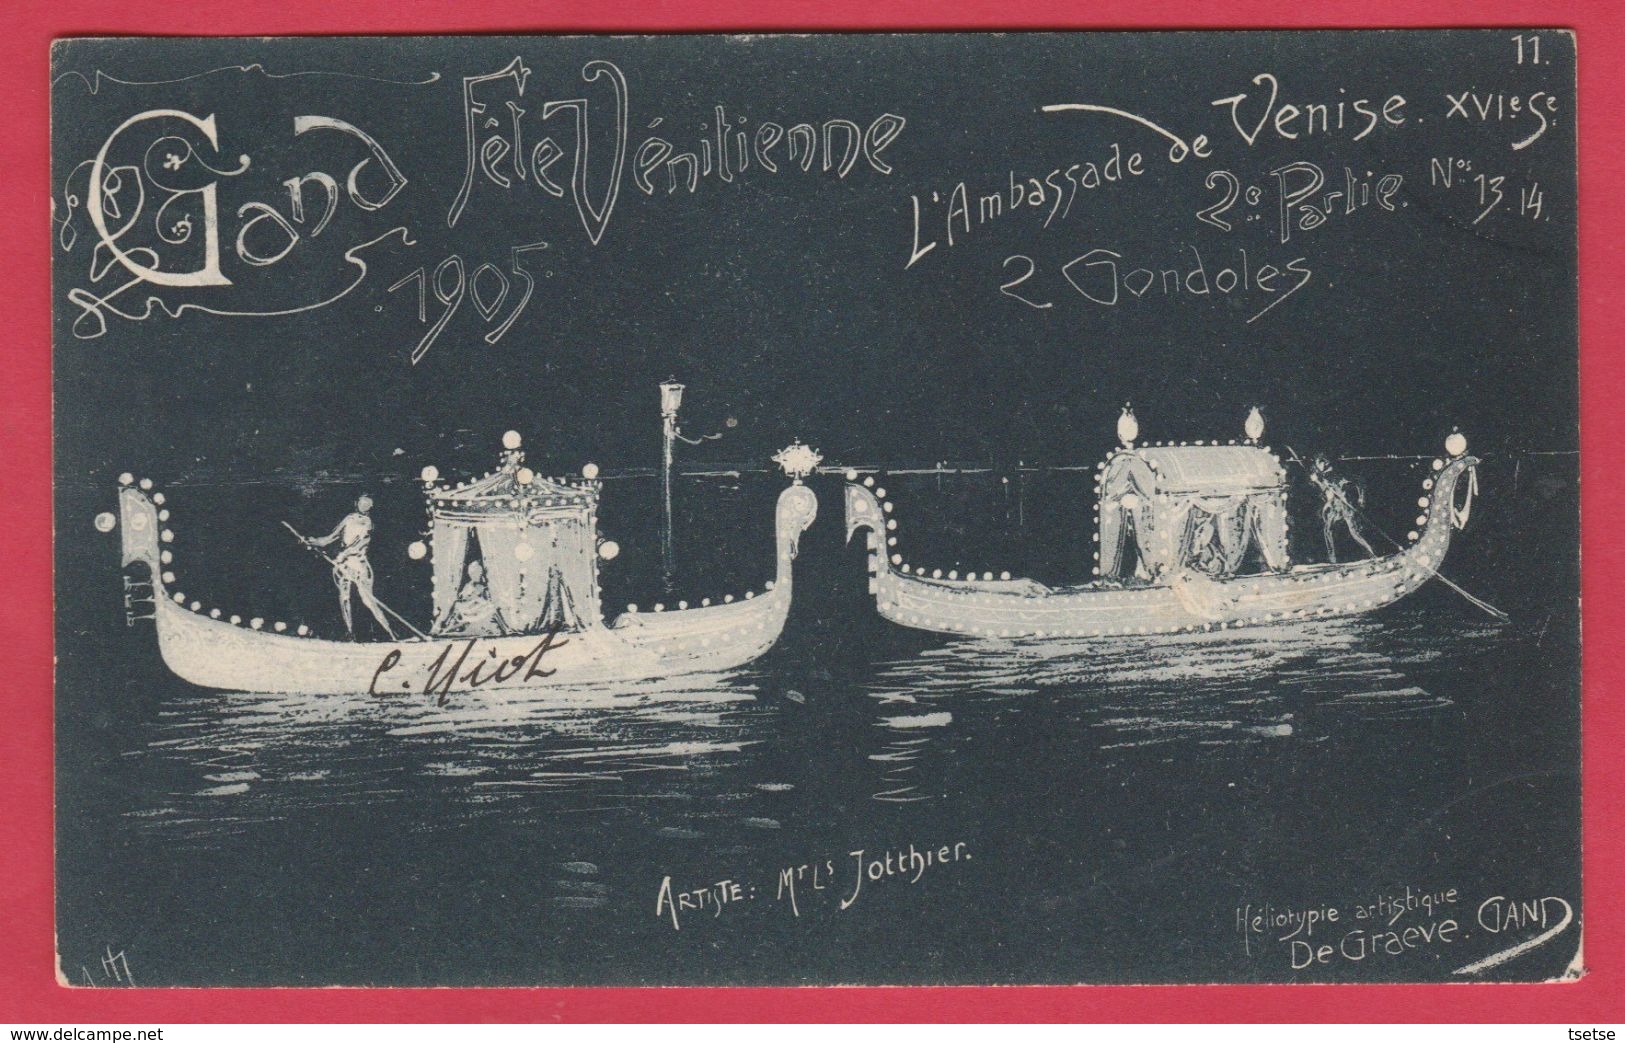 11.
Gand Fête Vénitienne
1905.
L'Ambassade de Venise. XVIe Se
2e Partie. Nos 13.14.
2 Gondoles.
Artiste: Mr Ls Jotthier.
Héliotypie artistique
De Graeve. Gand
www.delcampe.net
tsetse